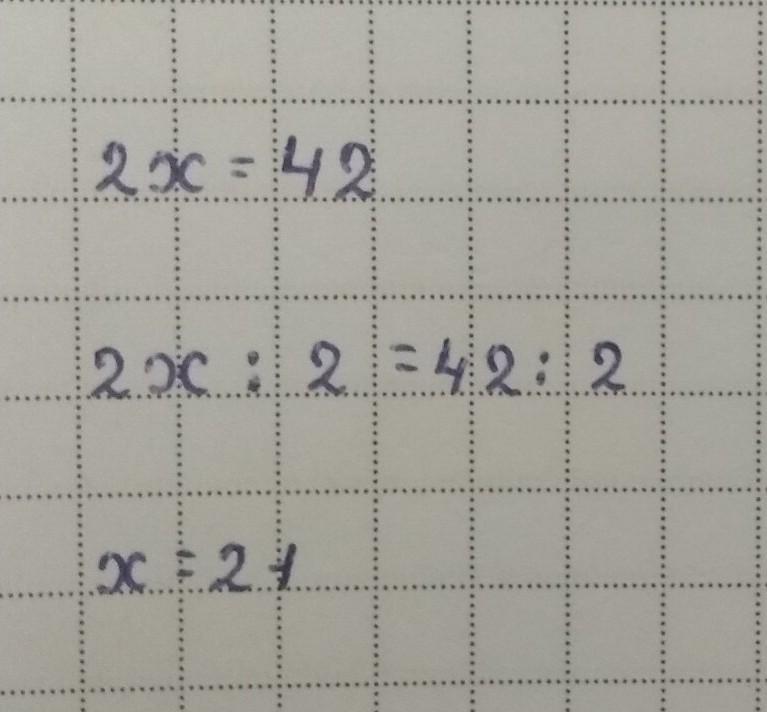 2x = 42
2x : 2 = 42 : 2
x = 21